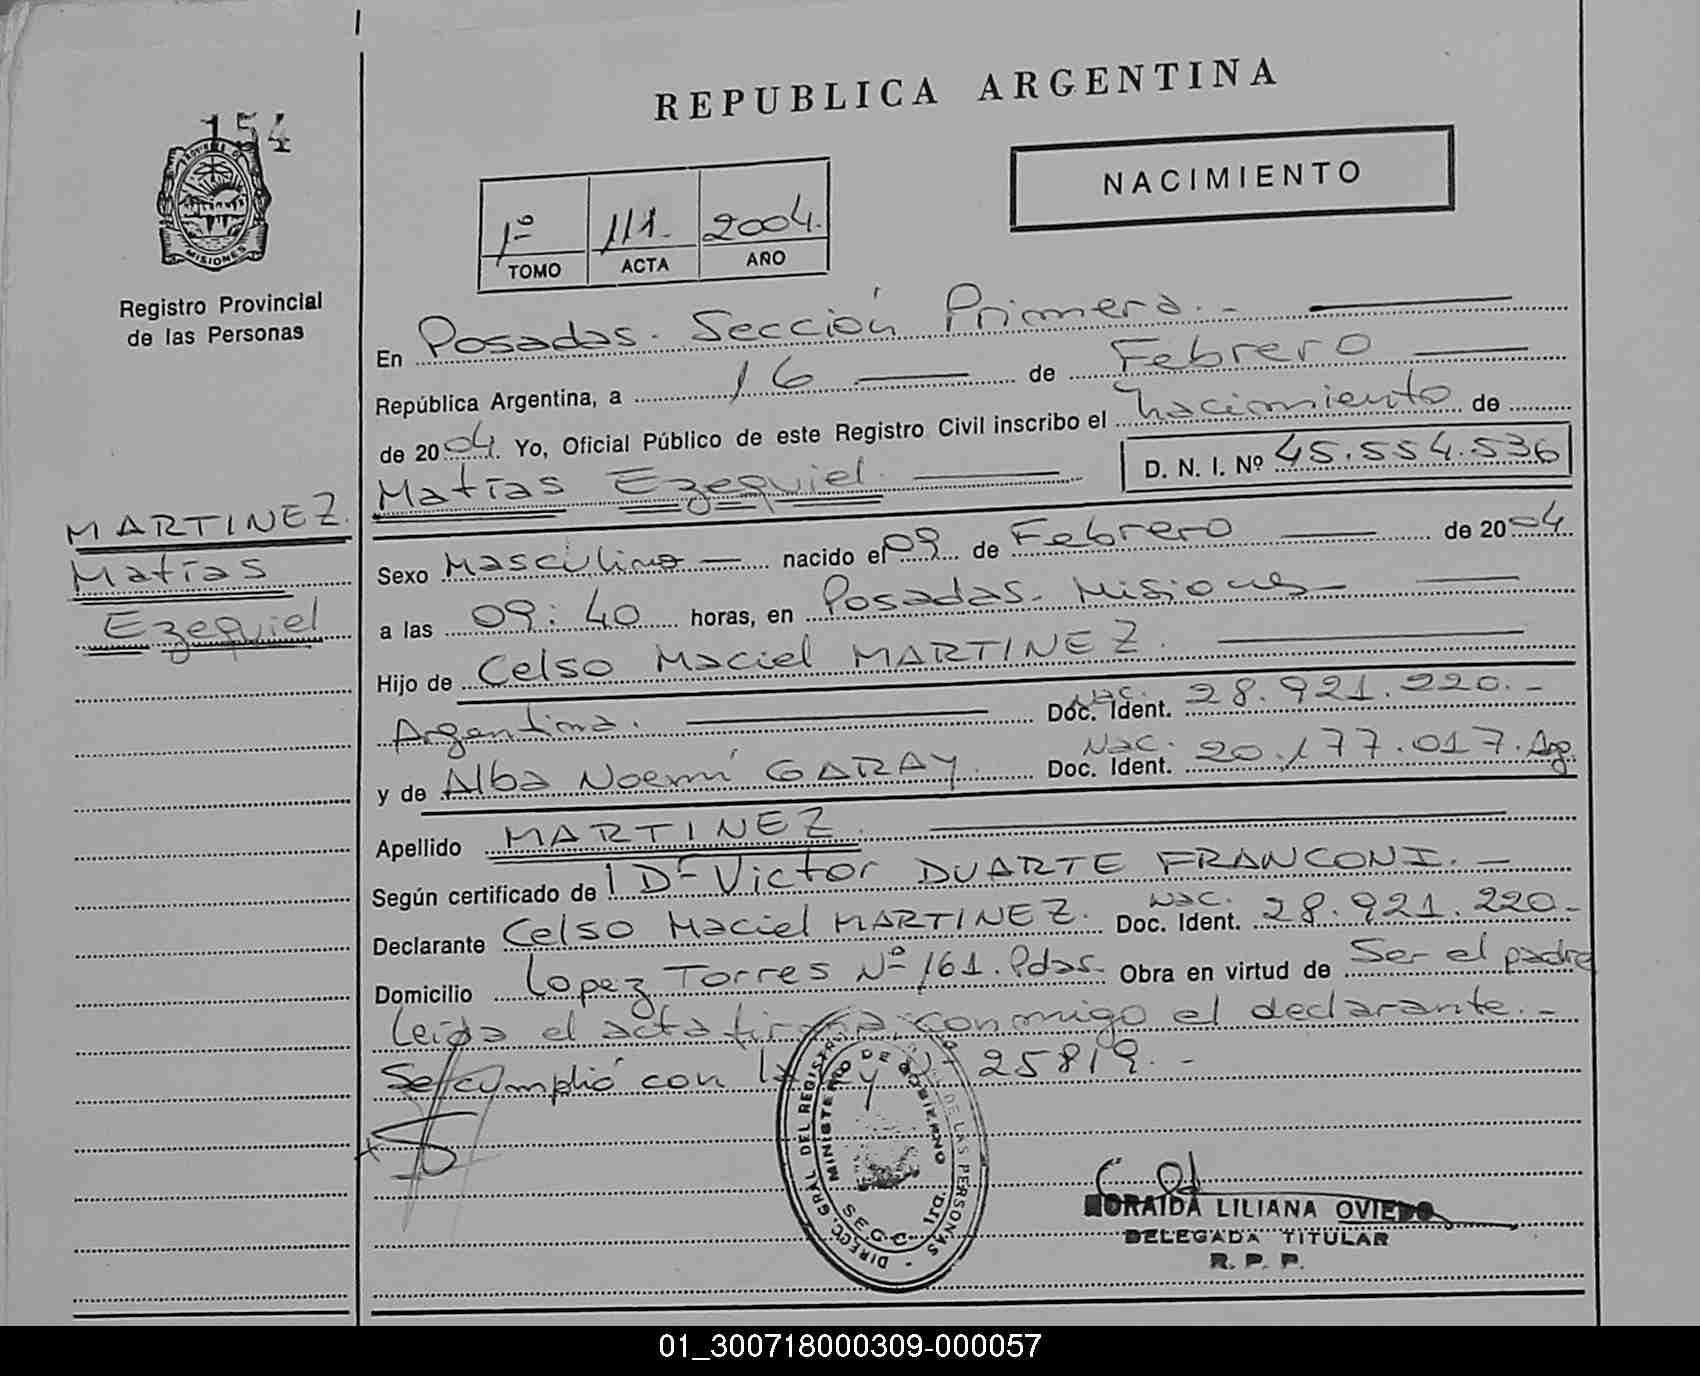 REPUBLICA ARGENTINA
154
PROVINCIA DE
MISIONES
NACIMIENTO
1º 111. 2004.
TOMO ACTA AÑO
Registro Provincial
de las Personas
En Posadas. Sección Primera.-
República Argentina, a 16 de Febrero
de 2004. Yo, Oficial Público de este Registro Civil inscribo el nacimiento de
Matías Ezequiel. D. N. I. Nº 45.554.536
MARTINEZ.
Matías
Ezequiel
Sexo Masculino nacido el 09 de Febrero de 2004.
a las 09:40 horas, en Posadas. Misiones
Hijo de Celso Maciel MARTINEZ.
Argentina. Nac. Doc. Ident. 28.921.220.-
y de Alba Noemí GARAY. Nac. Doc. Ident. 20.177.017. Arg.
Apellido MARTINEZ.
Según certificado de Dr Victor DUARTE FRANCONI.-
Declarante Celso Maciel MARTINEZ. Nac. Doc. Ident. 28.921.220-
Domicilio Lopez Torres Nº 161. Pdas. Obra en virtud de Ser el padre
leida el acta firma conmigo el declarante.-
Se cumplió con la Ley Nº 25819.-
DIRECC. GRAL. DEL REGISTRO DE LAS PERSONAS
MINISTERIO DE GOBIERNO
SECC. 1ra.
LILIANA OVIEDO
DELEGADA TITULAR
R. P. P.
01_300718000309-000057